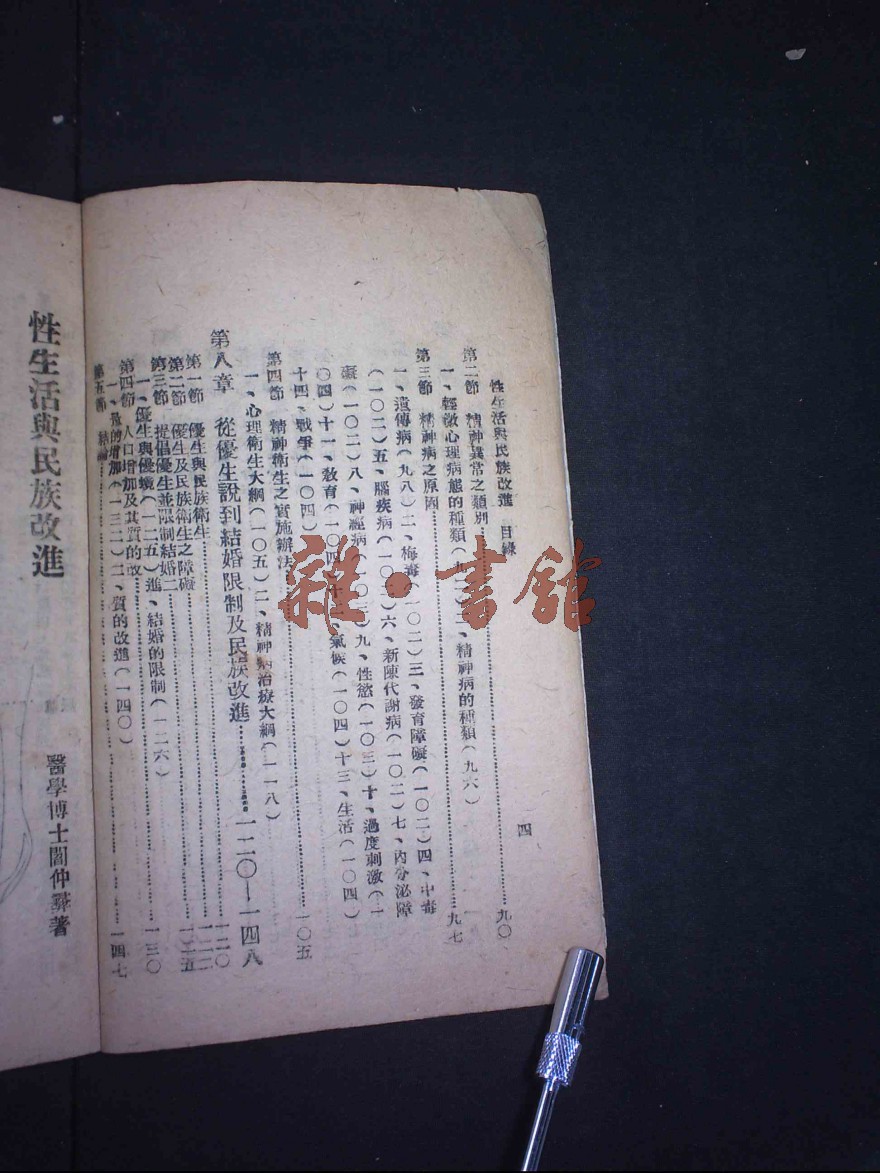 性生活與民族改進　目錄
四
第二節　精神異常之類別……九〇
一、輕微心理病態的種類（九一）二、精神病的種類（九六）
第三節　精神病之原因……九七
一、遺傳病（九八）二、梅毒（一〇二）三、發育障礙（一〇二）四、中毒
（一〇二）五、腦疾病（一〇二）六、新陳代謝病（一〇二）七、內分泌障
礙（一〇二）八、神經病（一〇三）九、性慾（一〇三）十、過度刺激（一
〇四）十一、敎育（一〇四）十二、氣候（一〇四）十三、生活（一〇四）
十四、戰爭（一〇四）
第四節　精神衛生之實施辦法……一〇五
一、心理衛生大綱（一〇五）二、精神病治療大綱（一一八）
第八章　從優生說到結婚限制及民族改進……一二〇—一四八
第一節　優生與民族衛生……一二〇
第二節　優生及民族衛生之障礙……一二二
第三節　提倡優生並限制結婚……一二五
一、優生與優境（一二五）二、結婚的限制（一二六）
第四節　人口增加及其質的改進……一三〇
一、量的增加（一三二）二、質的改進（一四〇）
第五節　結論……一四七
性生活與民族改進
醫學博士閻仲彝著
雜·書館